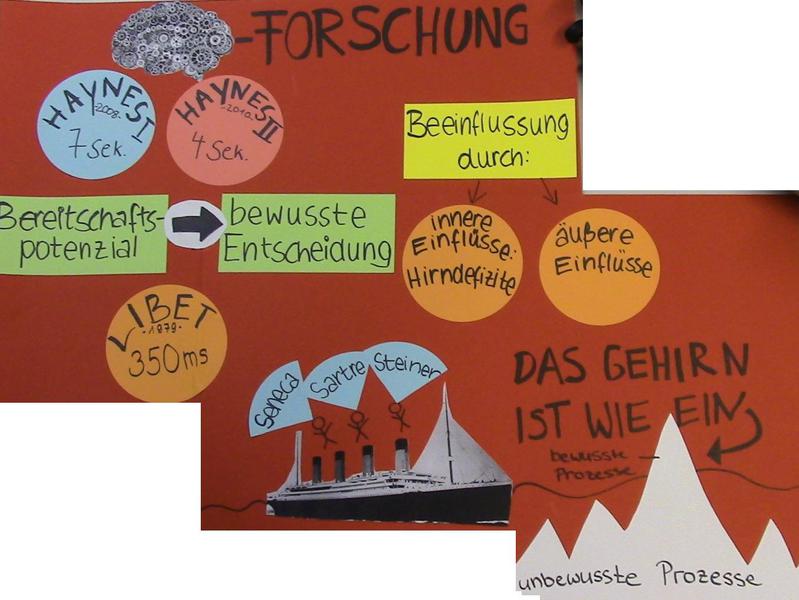 -FORSCHUNG
HAYNES I
-2008-
7 Sek.
HAYNES II
-2010-
4 Sek.
Beeinflussung
durch:
Bereitschafts-
potenzial
bewusste
Entscheidung
innere
Einflüsse:
Hirndefizite
äußere
Einflüsse
LIBET
-1979-
350ms
Seneca
Sartre
Steiner
DAS GEHIRN
IST WIE EIN
bewusste
Prozesse
unbewusste Prozesse